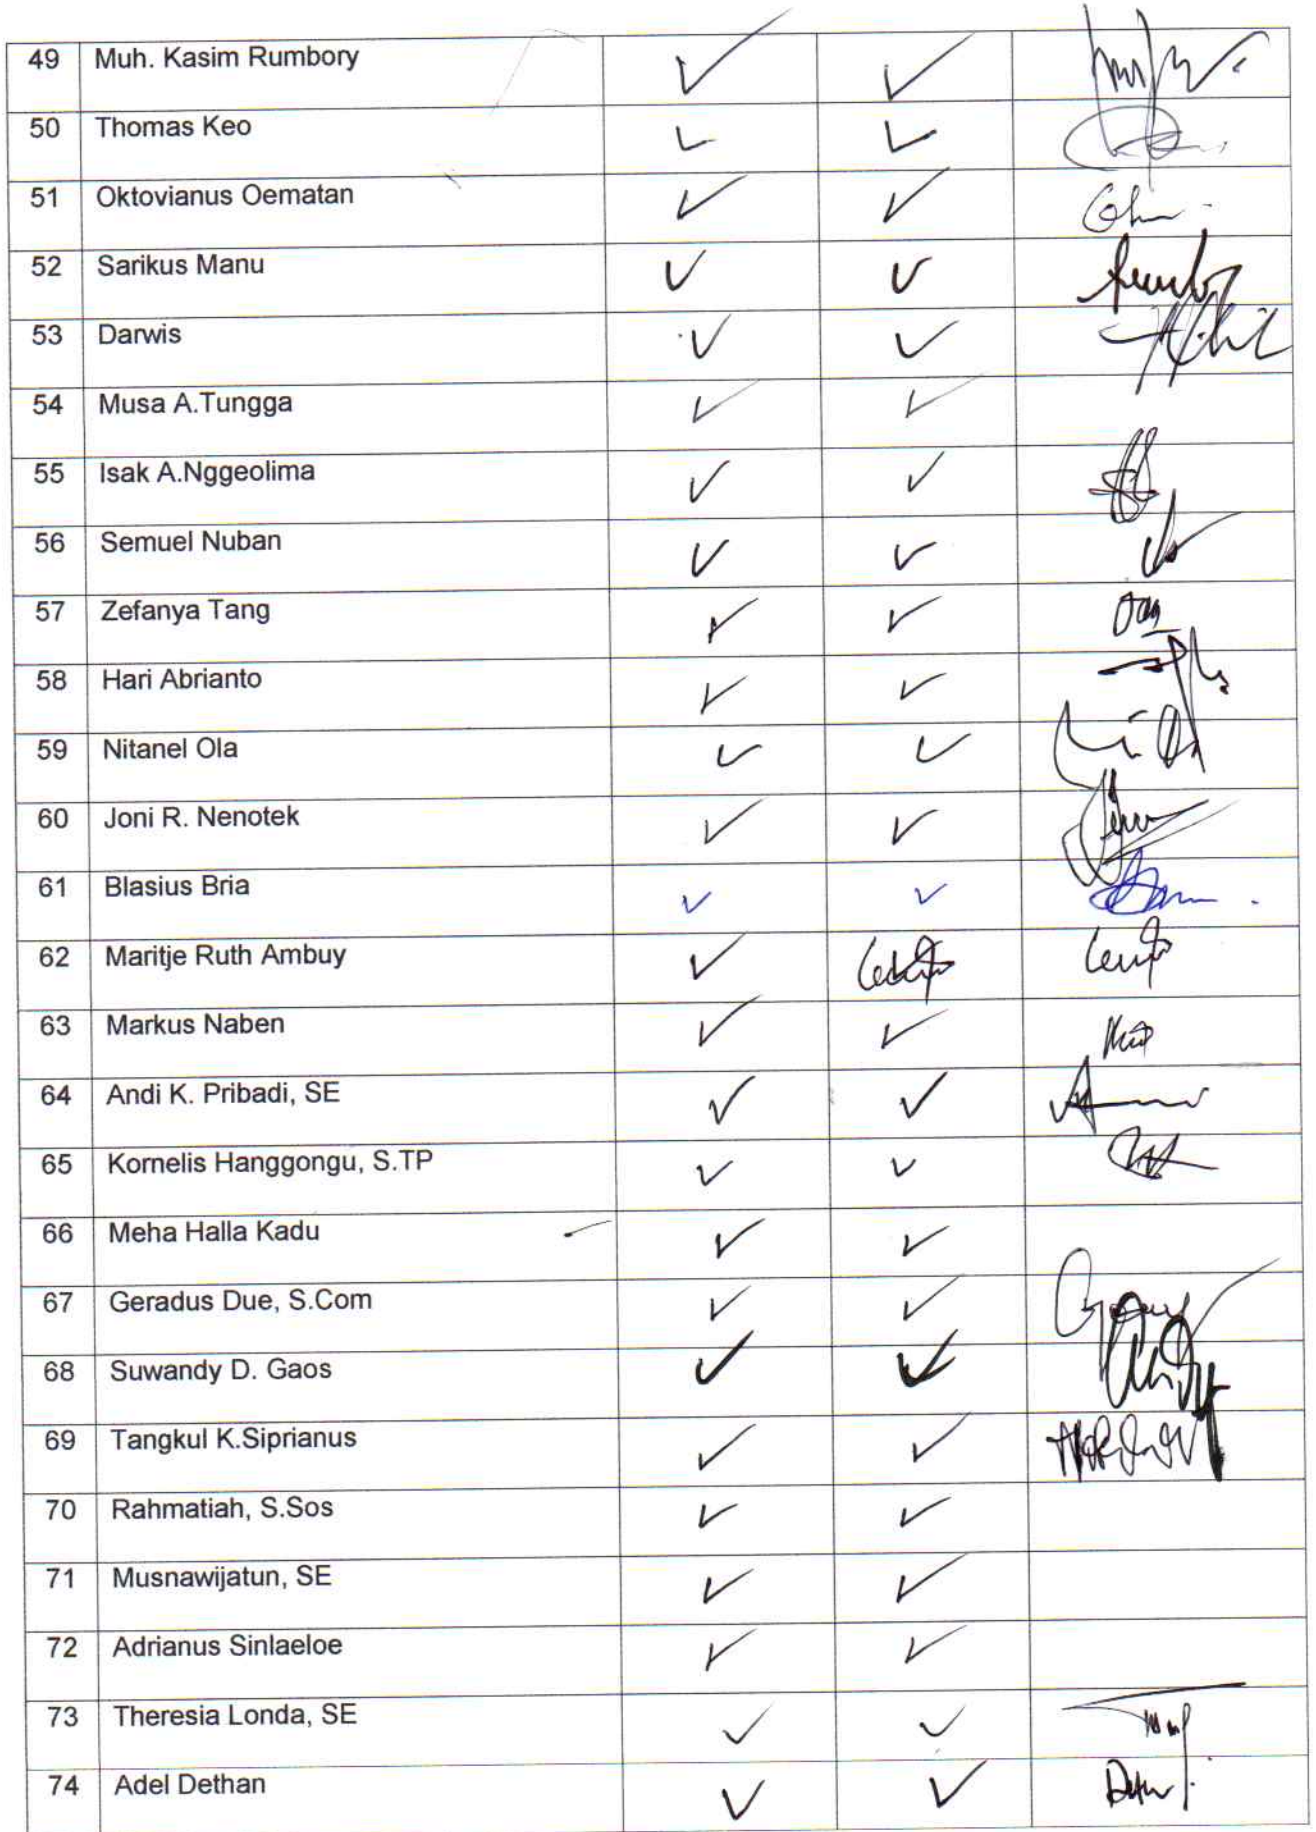 49 Muh. Kasim Rumbory
50 Thomas Keo
51 Oktovianus Oematan
52 Sarikus Manu
53 Darwis
54 Musa A.Tungga
55 Isak A.Nggeolima
56 Semuel Nuban
57 Zefanya Tang
58 Hari Abrianto
59 Nitanel Ola
60 Joni R. Nenotek
61 Blasius Bria
62 Maritje Ruth Ambuy
63 Markus Naben
64 Andi K. Pribadi, SE
65 Kornelis Hanggongu, S.TP
66 Meha Halla Kadu
67 Geradus Due, S.Com
68 Suwandy D. Gaos
69 Tangkul K.Siprianus
70 Rahmatiah, S.Sos
71 Musnawijatun, SE
72 Adrianus Sinlaeloe
73 Theresia Londa, SE
74 Adel Dethan